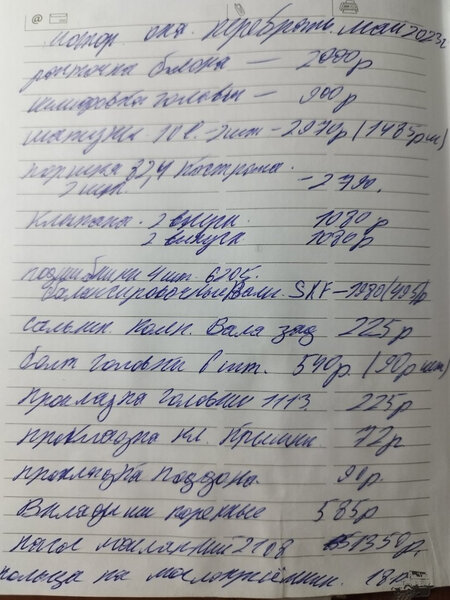 Мотор ока перебрать. Май 2023г
расточка блока — 2000р
шлифовка головы — 900р
2шт — 2970р (1485р шт)
поршня 82,4 Кострома.
2 шт. — 2790.
Клапана. 2 впуск. 1080р
2 выпуск 1080р
подшибники 4 шт. 6205.
балансировочный вал. SKF — 1980 (495)р
сальник колен вала зад 225р
болт головки 6 шт. 540р. (90р шт)
прокладка головки 1113. 225р
прокладка кл. крышки 72р
прокладка поддона. 90р.
Вкладыши коренные 585р
насос маслянный 2108 1350р.
кольца на маслоприёмник. 18р.